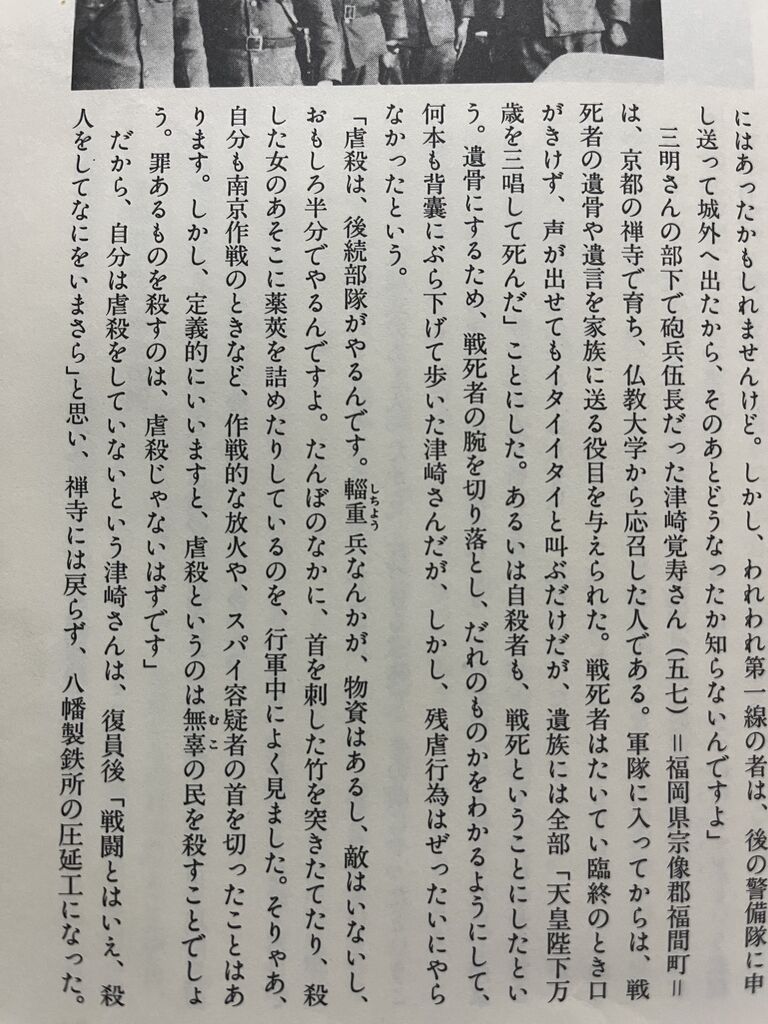 にはあったかもしれませんけど。しかし、われわれ第一線の者は、後の警備隊に申
し送って城外へ出たから、そのあとどうなったか知らないんですよ」
三明さんの部下で砲兵伍長だった津崎覚寿さん（五七）＝福岡県宗像郡福間町＝
は、京都の禅寺で育ち、仏教大学から応召した人である。軍隊に入ってからは、戦
死者の遺骨や遺言を家族に送る役目を与えられた。戦死者はたいてい臨終のとき口
がきけず、声が出せてもイタイイタイと叫ぶだけだが、遺族には全部「天皇陛下万
歳を三唱して死んだ」ことにした。あるいは自殺者も、戦死ということにしたとい
う。遺骨にするため、戦死者の腕を切り落とし、だれのものかをわかるようにして、
何本も背囊にぶら下げて歩いた津崎さんだが、しかし、残虐行為はぜったいにやら
なかったという。
「虐殺は、後続部隊がやるんです。輜重兵なんかが、物資はあるし、敵はいないし、
しちよう
おもしろ半分でやるんですよ。たんぼのなかに、首を刺した竹を突きたてたり、殺
した女のあそこに薬莢を詰めたりしているのを、行軍中によく見ました。そりゃあ、
自分も南京作戦のときなど、作戦的な放火や、スパイ容疑者の首を切ったことはあ
ります。しかし、定義的にいいますと、虐殺というのは無辜の民を殺すことでしょ
むこ
う。罪あるものを殺すのは、虐殺じゃないはずです」
だから、自分は虐殺をしていないという津崎さんは、復員後「戦闘とはいえ、殺
人をしてなにをいまさら」と思い、禅寺には戻らず、八幡製鉄所の圧延工になった。